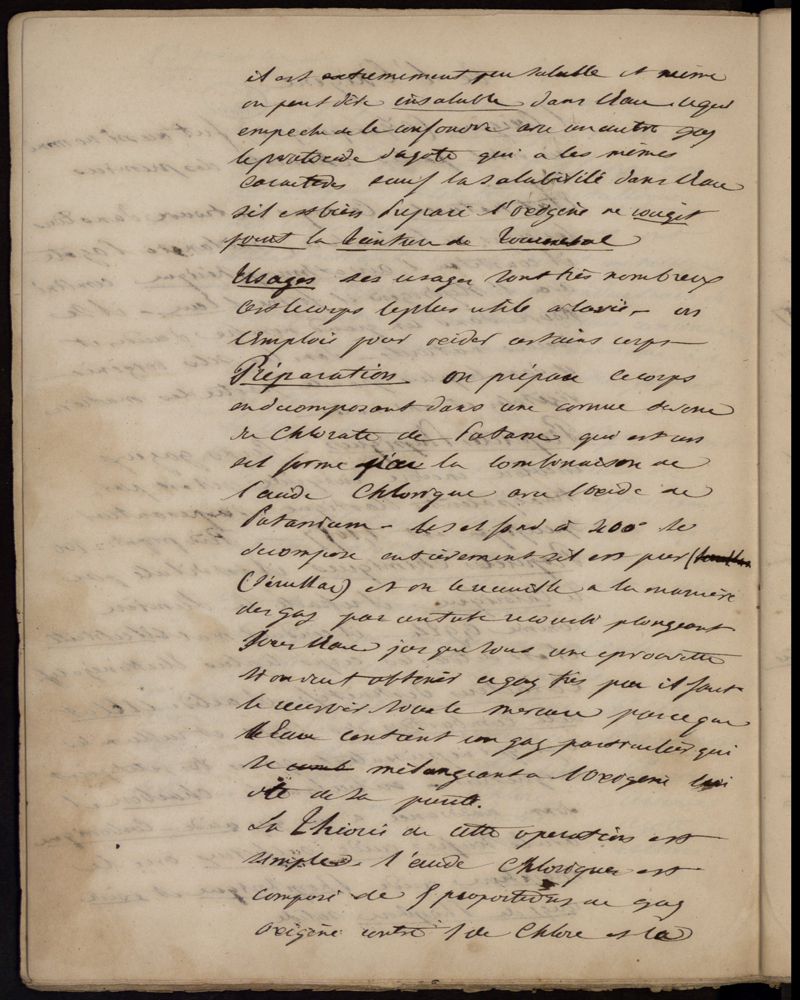 il est extremement peu soluble et même
on peut dire insoluble dans l'eau ce qui
empeche de le confondre avec un autre gaz
le protoxide d'azote qui a les mêmes
caracteres sauf la solubilité dans l'eau
s'il est bien preparé l'oxigène ne rougit
point la teinture de tournesol
Usages ses usages sont très nombreux
c'est le corps le plus utile a la vie - on
l'emploie pour oxider certains corps -
Préparation on prépare ce corps
en decomposant dans une cornue de verre
du Chlorate de Potasse qui est un
sel formé par la combinaison de
l'acide Chlorique avec l'oxide de
Potassium - le sel fond à 400° se
decompose entièrement s'il est pur
(Sérullas) et on le recueille a la manière
des gaz par un tube recourbé plongeant
sous l'eau jusque sous une eprouvette
si on veut obtenir ce gaz très pur il faut
le recevoir sous le mercure parce que
l'Eau contient un gaz particulier qui
se mélangeant a l'oxigène lui
ôte de sa pureté.
La Théorie de cette operation est
simple. l'acide Chlorique est
composé de 5 proportions de gaz
oxigène contre 1 de Chlore et la